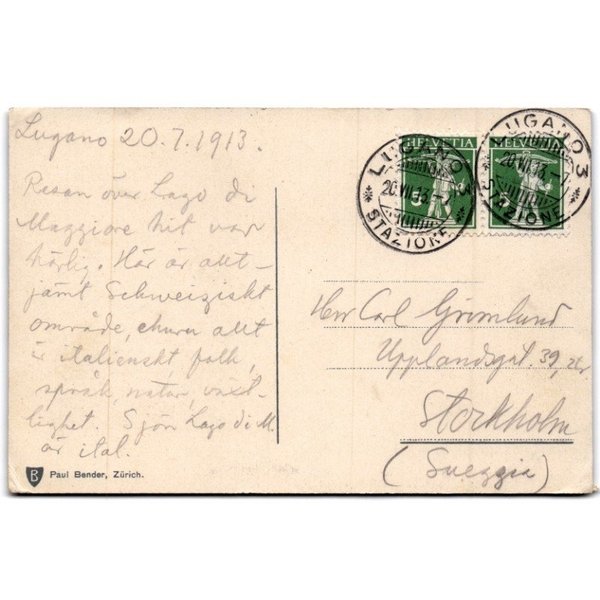 Lugano 20.7.1913.
Resan över Lago di
Maggiore hit var
härlig. Här är allt-
jämt Schweiziskt
område, churu allt
är italienskt folk,
språk, natur, växt-
lighet. Sjön Lago di M.
är ital.
B
Paul Bender, Zürich.
HELVETIA
HELVETIA
LUGANO
20.VII.13.-
STAZIONE
LUGANO 3
20.VII.13.-
STAZIONE
Herr Carl Grimlund
Upplandsgat. 39,
Stockholm
(Sveggia)